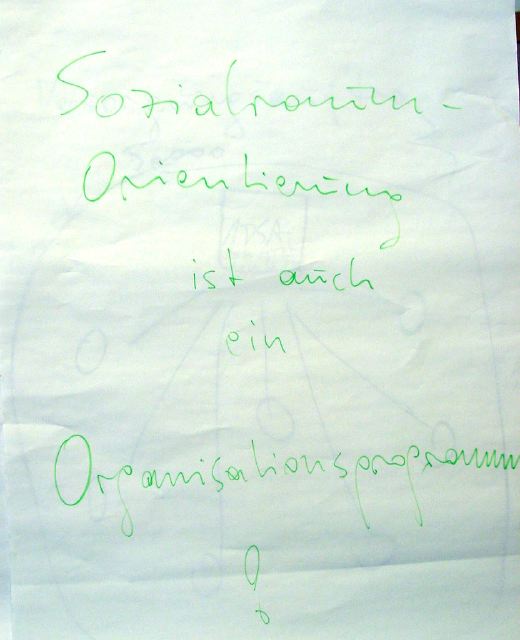 Sozialraum-
Orientierung
ist auch
ein
Organisationsprogramm
!